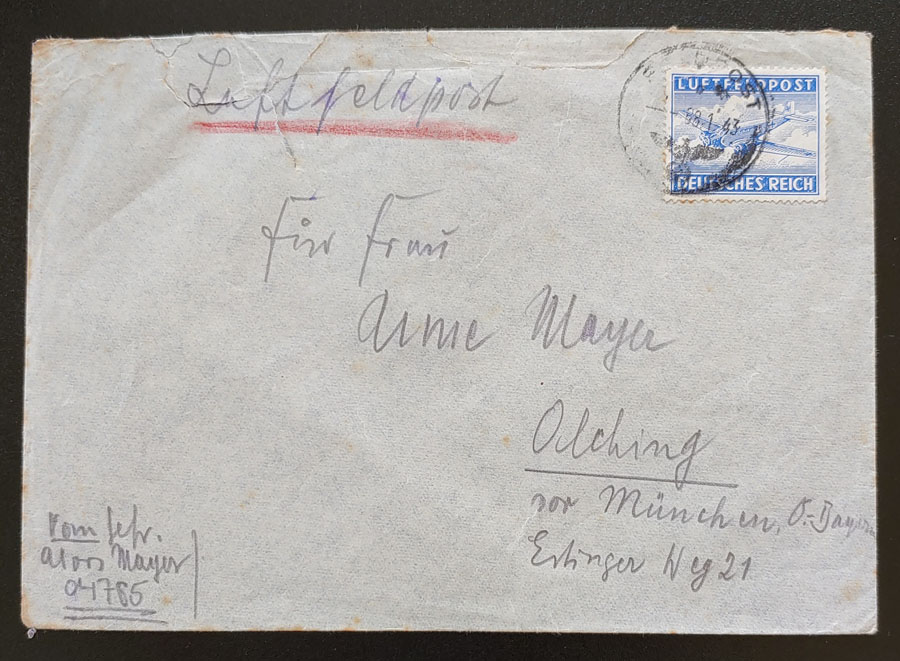 Luftfeldpost
LUFTFELDPOST
1.43
DEUTSCHES REICH
Für Frau
Anne Mayer
Olching
vor München, O.-Bayern
Estinger Weg 21
Vom Gefr.
Alois Mayer
04765